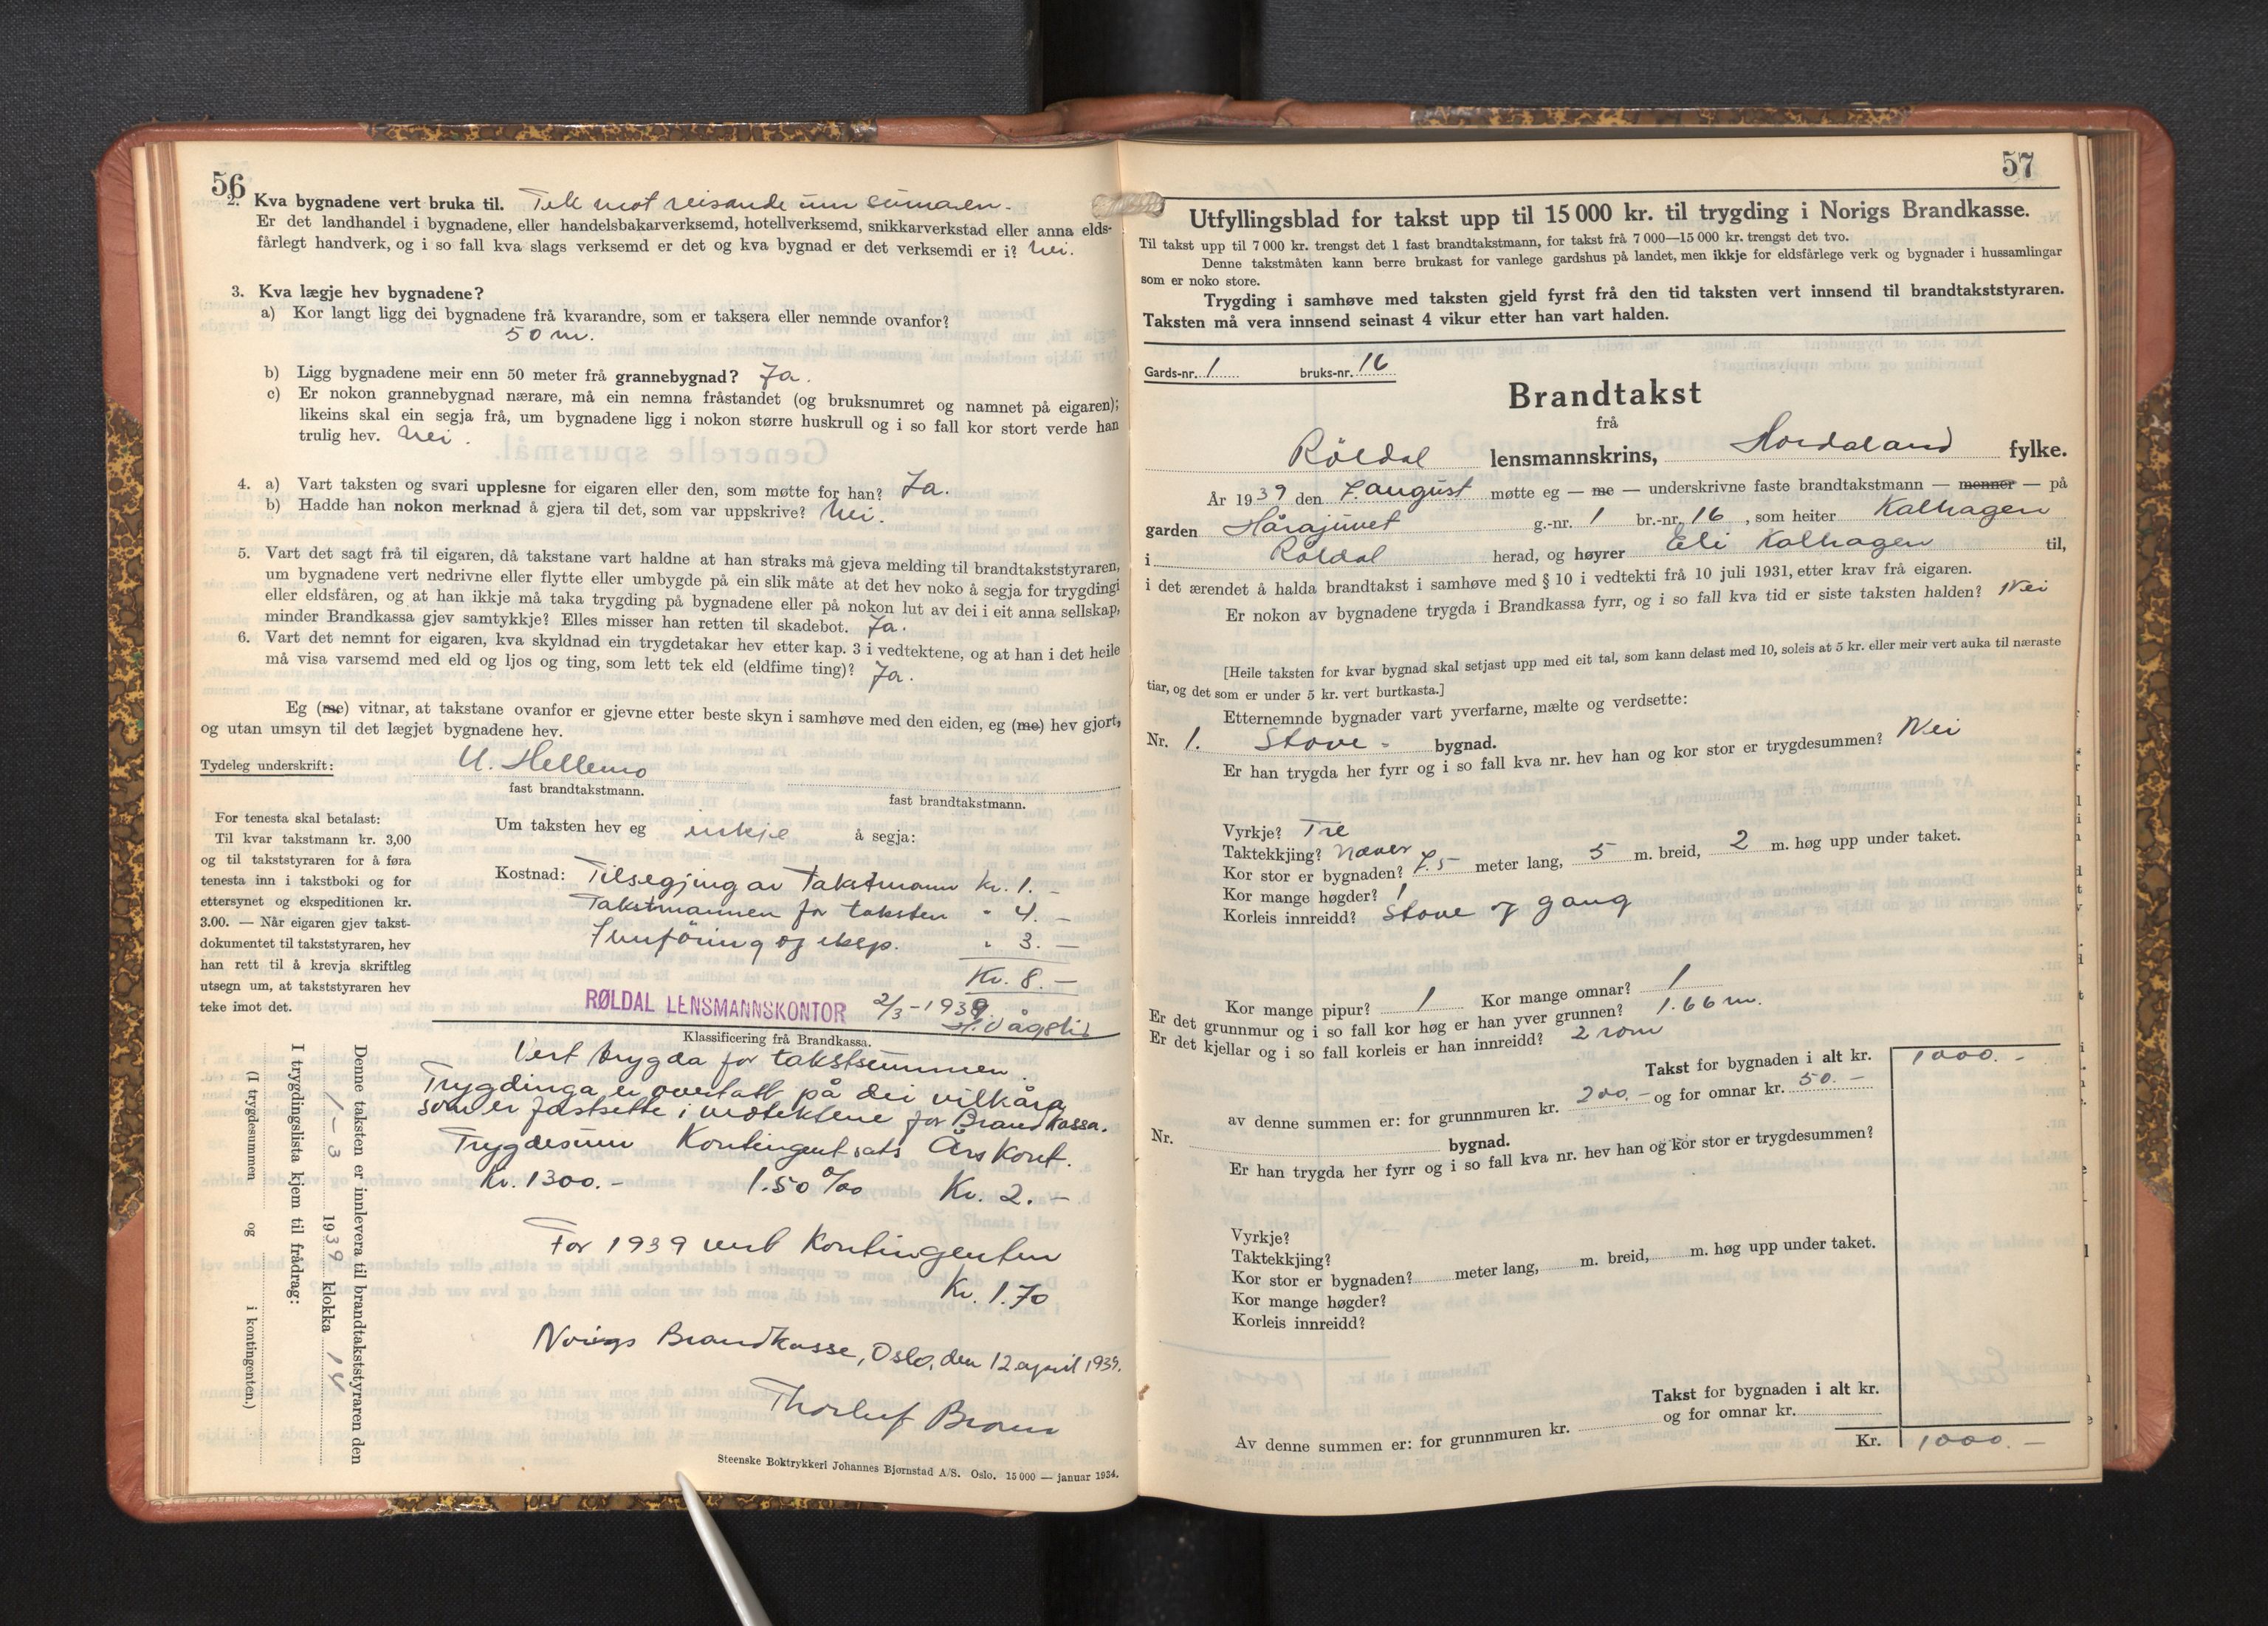 56
2. Kva bygnadene vert bruka til. Tek mot reisande um sumaren.
Er det landhandel i bygnadene, eller handelsbakarverksemd, hotellverksemd, snikkarverkstad eller anna elds-
fårlegt handverk, og i so fall kva slags verksemd er det og kva bygnad er det verksemdi er i? Nei.
3. Kva lægje hev bygnadene?
a) Kor langt ligg dei bygnadene frå kvarandre, som er taksera eller nemnde ovanfor?
50 m.
b) Ligg bygnadene meir enn 50 meter frå grannebygnad? Ja.
c) Er nokon grannebygnad nærare, må ein nemna fråstandet (og bruksnumret og namnet på eigaren);
likeins skal ein segja frå, um bygnadene ligg i nokon større huskrull og i so fall kor stort verde han
trulig hev. Nei.
4. a) Vart taksten og svari upplesne for eigaren eller den, som møtte for han? Ja.
b) Hadde han nokon merknad å gjera til det, som var uppskrive? Nei.
5. Vart det sagt frå til eigaren, då takstane vart haldne at han straks må gjeva melding til brandtakststyraren,
um bygnadene vert nedrivne eller flytte eller umbygde på ein slik måte at det hev noko å segja for trygdingi
eller eldsfåren, og at han ikkje må taka trygding på bygnadene eller på nokon lut av dei i eit anna sellskap,
minder Brandkassa gjev samtykkje? Elles misser han retten til skadebot. Ja.
6. Vart det nemnt for eigaren, kva skyldnad ein trygdetakar hev etter kap. 3 i vedtektene, og at han i det heile
må visa varsemd med eld og ljos og ting, som lett tek eld (eldfime ting)? Ja.
Eg (me) vitnar, at takstane ovanfor er gjevne etter beste skyn i samhøve med den eiden, eg (me) hev gjort,
og utan umsyn til det lægjet bygnadene hev.
Tydeleg underskrift: U. Hellemo
fast brandtakstmann. fast brandtakstmann.
For tenesta skal betalast:
Til kvar takstmann kr. 3,00
og til takststyraren for å føra
tenesta inn i takstboki og for
ettersynet og ekspeditionen kr.
3.00. — Når eigaren gjev takst-
dokumentet til takststyraren, hev
han rett til å krevja skriftleg
utsegn um, at takststyraren hev
teke imot det.
Um taksten hev eg inkje å segja:
Kostnad: Tilsegjing av takstmann kr. 1. -
Takstmannen for taksten " 4. -
Innföring og eksp. " 3. -
Kr. 8. -
RØLDAL LENSMANNSKONTOR 2/3 - 1939
Klassificering frå Brandkassa.
Vert trygda for takstsummen.
Trygdinga er overtatt på dei vilkåra
som er fastsette i vedtektene for Brandkassa.
Trygdesum Kontingentsats Årskont.
Kr. 1300. - 1.50 ‰ Kr. 2. -
For 1939 vert kontingenten
Kr. 1.70
Norigs Brandkasse, Oslo, den 12 april 1939.
Steenske Boktrykkeri Johannes Bjørnstad A/S. Oslo. 15 000 — januar 1934.
Denne taksten er innlevera til brandtakststyraren den
1 - 3 1939 klokka 14
I trygdingslista kjem til frådrag:
(I trygdesummen og i kontingenten.)
57
Utfyllingsblad for takst upp til 15 000 kr. til trygding i Norigs Brandkasse.
Til takst upp til 7 000 kr. trengst det 1 fast brandtakstmann, for takst frå 7 000—15 000 kr. trengst det tvo.
Denne takstmåten kann berre brukast for vanlege gardshus på landet, men ikkje for eldsfårlege verk og bygnader i hussamlingar
som er noko store.
Trygding i samhøve med taksten gjeld fyrst frå den tid taksten vert innsend til brandtakststyraren.
Taksten må vera innsend seinast 4 vikur etter han vart halden.
Gards-nr. 1 bruks-nr. 16
Brandtakst
frå
Röldal lensmannskrins, Hordaland fylke.
År 1939 den 7. august møtte eg — me — underskrivne faste brandtakstmann — menner — på
garden Hårajuvet g.-nr. 1 br.-nr. 16, som heiter Kalhagen
i Röldal herad, og høyrer Eli Kalhagen til,
i det ærendet å halda brandtakst i samhøve med § 10 i vedtekti frå 10 juli 1931, etter krav frå eigaren.
Er nokon av bygnadene trygda i Brandkassa fyrr, og i so fall kva tid er siste taksten halden? Nei
[Heile taksten for kvar bygnad skal setjast upp med eit tal, som kann delast med 10, soleis at 5 kr. eller meir vert auka til næraste
tiar, og det som er under 5 kr. vert burtkasta.]
Etternemnde bygnader vart yverfarne, mælte og verdsette:
Nr. 1. Stove - bygnad.
Er han trygda her fyrr og i so fall kva nr. hev han og kor stor er trygdesummen? Nei
Vyrkje? Tre
Taktekkjing? Never
Kor stor er bygnaden? 7.5 meter lang, 5 m. breid, 2 m. høg upp under taket.
Kor mange høgder? 1
Korleis innreidd? Stove og gang
Kor mange pipur? 1 Kor mange omnar? 1
Er det grunnmur og i so fall kor høg er han yver grunnen? 1.66 m.
Er det kjellar og i so fall korleis er han innreidd? 2 rom
Takst for bygnaden i alt kr. 1000. -
av denne summen er: for grunnmuren kr. 200. - og for omnar kr. 50. -
Nr. bygnad.
Er han trygda her fyrr og i so fall kva nr. hev han og kor stor er trygdesummen?
Vyrkje?
Taktekkjing?
Kor stor er bygnaden? meter lang, m. breid, m. høg upp under taket.
Kor mange høgder?
Korleis innreidd?
Takst for bygnaden i alt kr.
Av denne summen er: for grunnmuren kr. og for omnar kr.
Kr. 1000. -